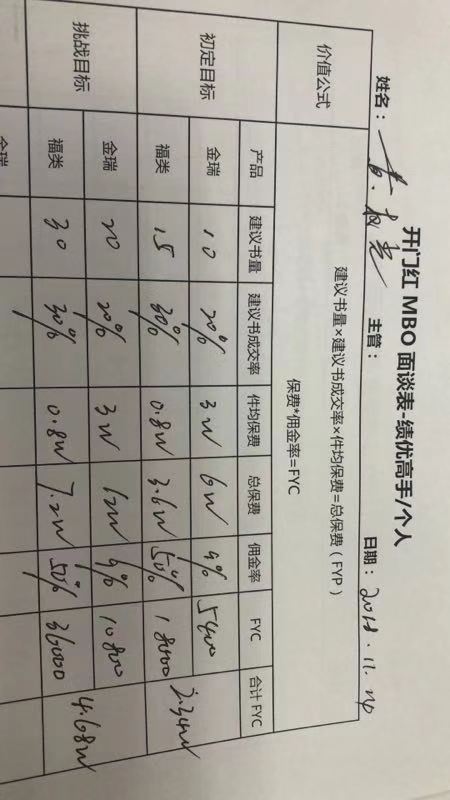 开门红 MBO 面谈表-绩优高手/个人
姓名： 主管： 日期：2018.11.
价值公式 建议书量×建议书成交率×件均保费=总保费（FYP）
保费*佣金率=FYC
产品 建议书量 建议书成交率 件均保费 总保费 佣金率 FYC 合计 FYC
初定目标 金瑞 10 20% 3W 6W 9% 5400 2.34W
福类 15 30% 0.8W 3.6W 50% 18000
挑战目标 金瑞 20 20% 3W 12W 9% 10800 4.68W
福类 30 30% 0.8W 7.2W 50% 36000
金瑞